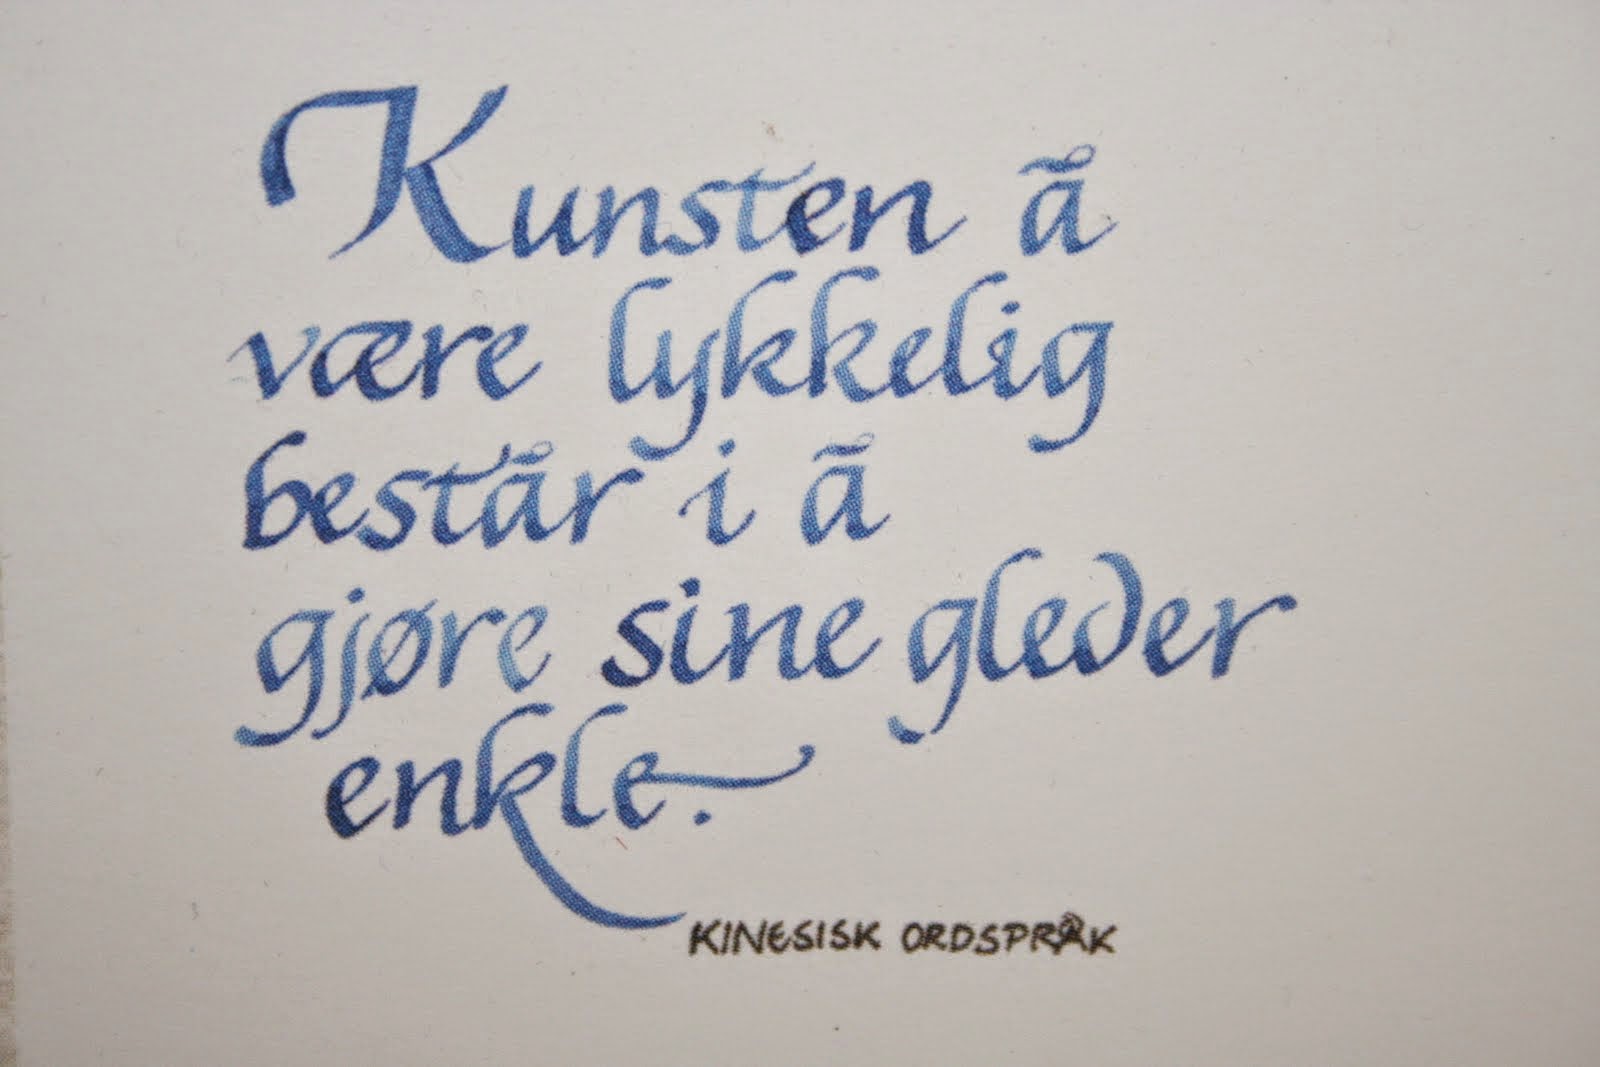 Kunsten å
være lykkelig
består i å
gjøre sine gleder
enkle.
KINESISK ORDSPRÅK